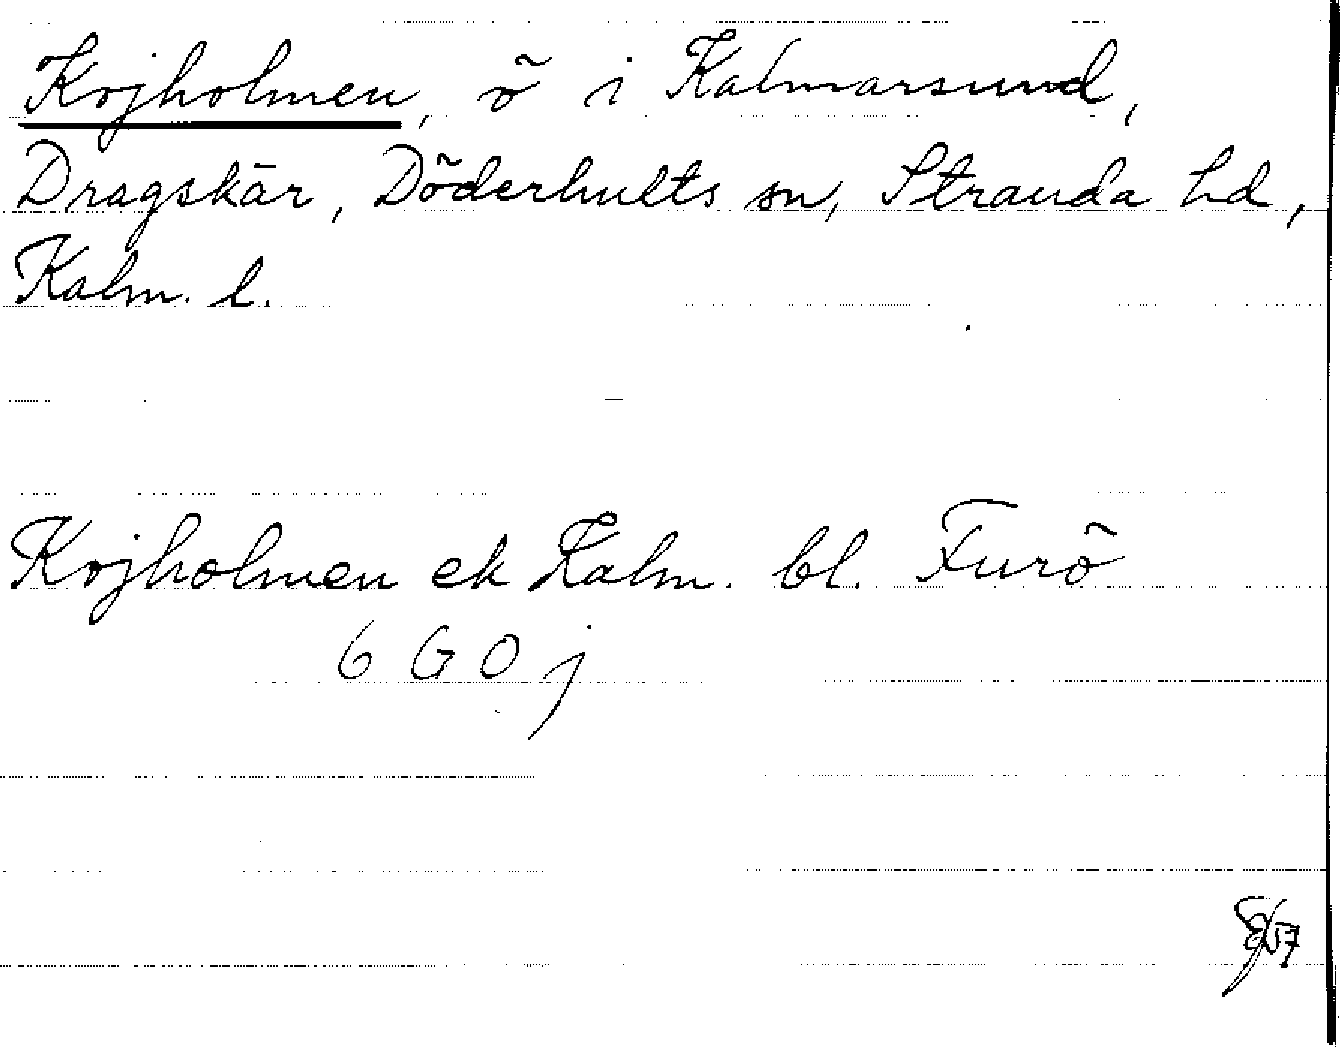 Kojholmen, ö i Kalmarsund,
Dragskär, Döderhults sn, Stranda hd,
Kalm. l.
Kojholmen ek Kalm. bl. Furö
6 G O j